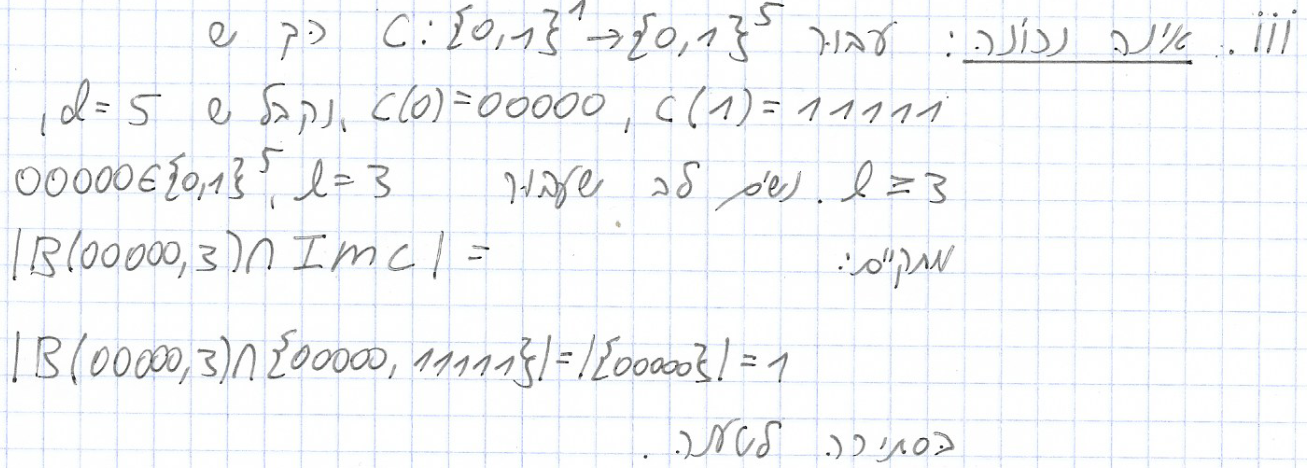 iii. אינה נכונה: עבור C:{0,1}¹→{0,1}⁵ כך ש
C(0)=00000, C(1)=11111, נקבל ש d=5,
l≥3. נשים לב שעבור l=3, 00000∈{0,1}⁵
מתקיים: |B(00000,3)∩Im C| =
|B(00000,3)∩{00000,11111}|=|{00000}|=1
בסתירה לטענה.